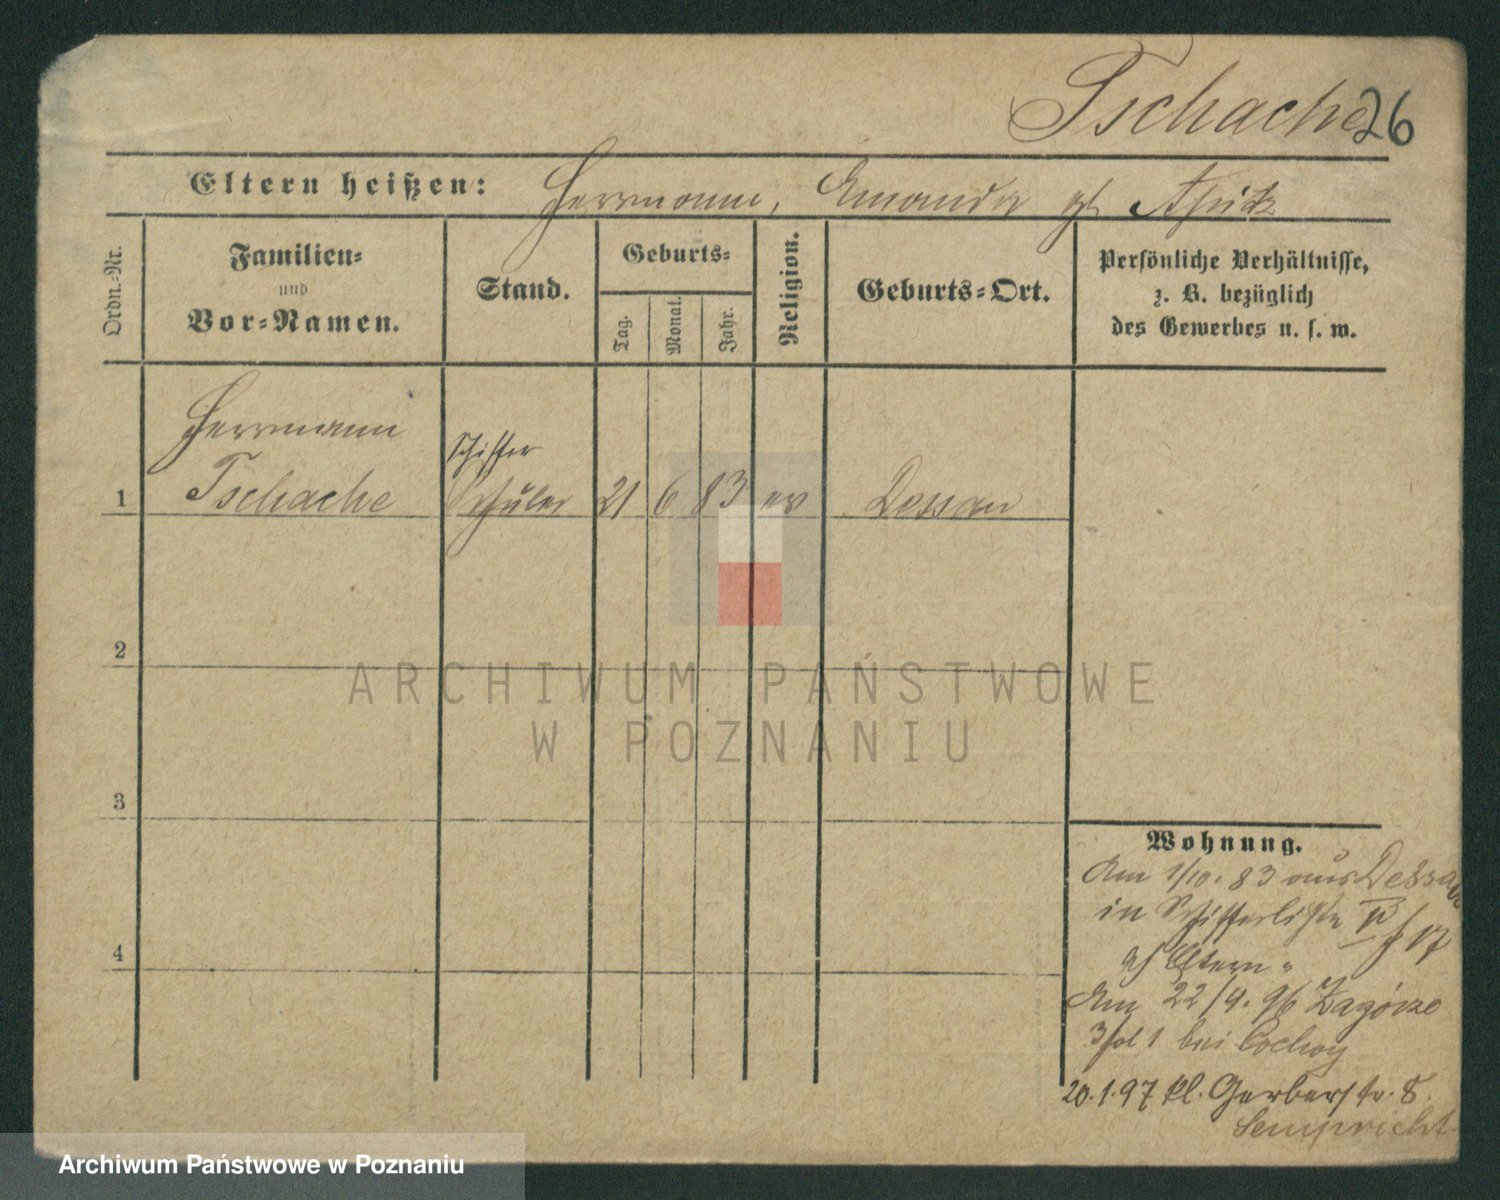 Tschache 26
Eltern heißen: Herrmann, Amanda gb
Ordn.-Nr.
Familien-
und
Vor-Namen.
Stand.
Geburts-
Tag.
Monat.
Jahr.
Religion.
Geburts-Ort.
Persönliche Verhältnisse,
z. B. bezüglich
des Gewerbes u. s. w.
Herrmann
Schiffer
1 Tschache Schüler 21 6 83 ev Dessau
2
3
4
Wohnung.
Am 1/10. 83 aus Dessau
in Schifferliste 17
Eltern
Am 22/4. 96 Zagórze
3 fol 1 bei
20.1.97 kl. Gerberstr. 8.
ARCHIWUM PAŃSTWOWE
W POZNANIU
Archiwum Państwowe w Poznaniu